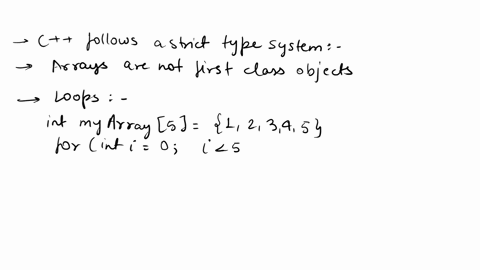 → C++ follows a strict type system:-
→ Arrays are not first class objects
→ Loops:-
int myArray[5] = {1, 2, 3, 4, 5}
for (int i = 0; i < 5